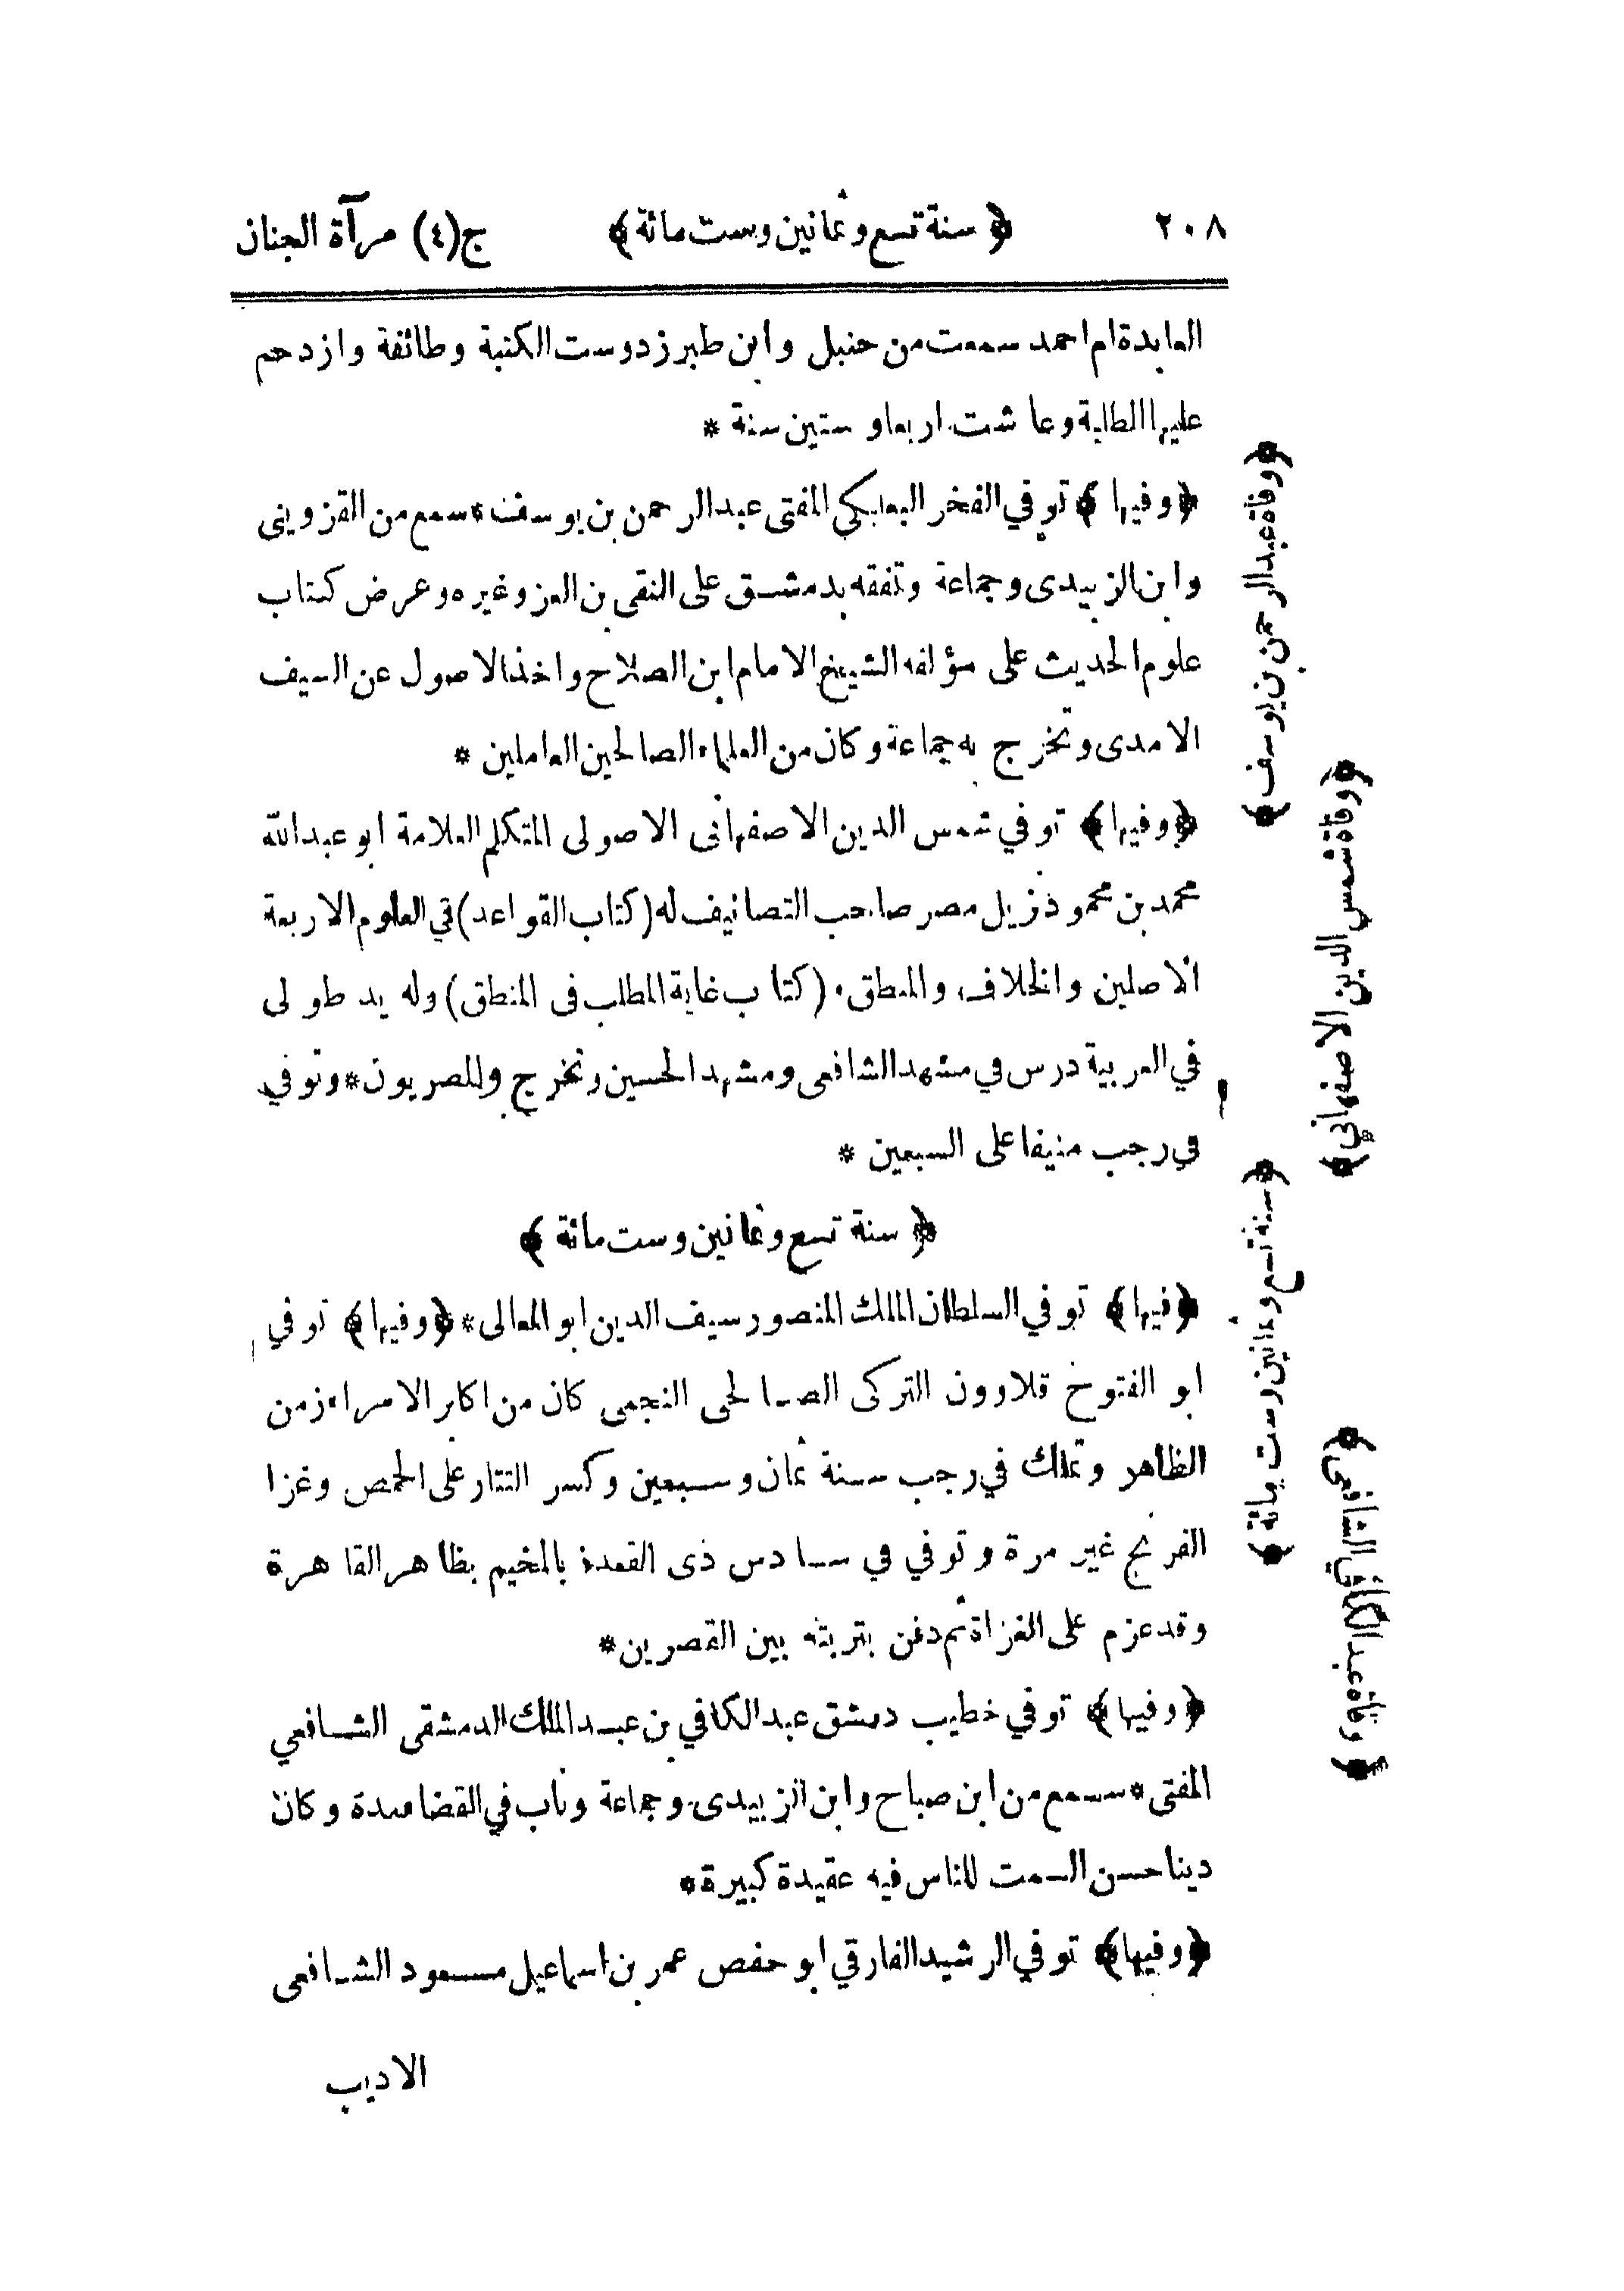 ٢٠٨ ﴿ سنة تسع وثمانين وست مائة ﴾ ج(٤) مرآة الجنان
العابدة ام احمد سمعت من حنبل وابن طبرزد وست الكتبة وطائفة وازدحم
عليها الطلبة وعاشت اربعا وستين سنة *
﴿وفيها﴾ توفي الفخر البعلبكى المفتى عبد الرحمن بن يوسف * سمع من القزوينى
وابن الزبيدى وجماعة وتفقه بدمشق على التقى بن العز وغيره وعرض كتاب
علوم الحديث على مؤلفه الشيخ الامام ابن الصلاح واخذ الاصول عن السيف
الامدى وتخرج به جماعة وكان من العلماء الصالحين العاملين *
﴿وفيها﴾ توفي شمس الدين الاصفهانى الاصولى المتكلم العلامة ابو عبد الله
محمد بن محمود نزيل مصر صاحب التصانيف له (كتاب القواعد) في العلوم الاربعة
الاصلين والخلاف والمنطق. (كتاب غاية المطلب فى المنطق) وله يد طولى
في العربية درس في مشهد الشافعى ومشهد الحسين وتخرج وللمصريون * وتوفي
في رجب منيفا على السبعين *
﴿ سنة تسع وثمانين وست مائة ﴾
﴿فيها﴾ توفي السلطان الملك المنصور سيف الدين ابو المعالى * ﴿وفيها﴾ توفي
ابو الفتوح قلاوون التركى الصالحى النجمى كان من اكابر الامراء زمن
الظاهر وتملك في رجب سنة ثمان وسبعين وكسر التتار على الحمص وغزا
الفرنج غير مرة وتوفي في سادس ذى القعدة بالمخيم بظاهر القاهرة
وقد عزم على الغزاة ثم دفن بتربته بين القصرين *
﴿وفيها﴾ توفي خطيب دمشق عبد الكافي بن عبد الملك الدمشقى الشافعي
المفتى * سمع من ابن صباح وابن الزبيدى وجماعة وناب في القضا مدة وكان
دينا حسن السمت للناس فيه عقيدة كبيرة *
﴿وفيها﴾ توفي الرشيد الفارقي ابو حفص عمر بن اسماعيل مسعود الشافعى
الاديب
﴿وفاة عبد الرحمن بن يوسف﴾
﴿وفاة شمس الدين الاصفهاني﴾
﴿سنة تسع وثمانين وست مائة﴾
﴿وفاة عبد الكافي الشافعى﴾